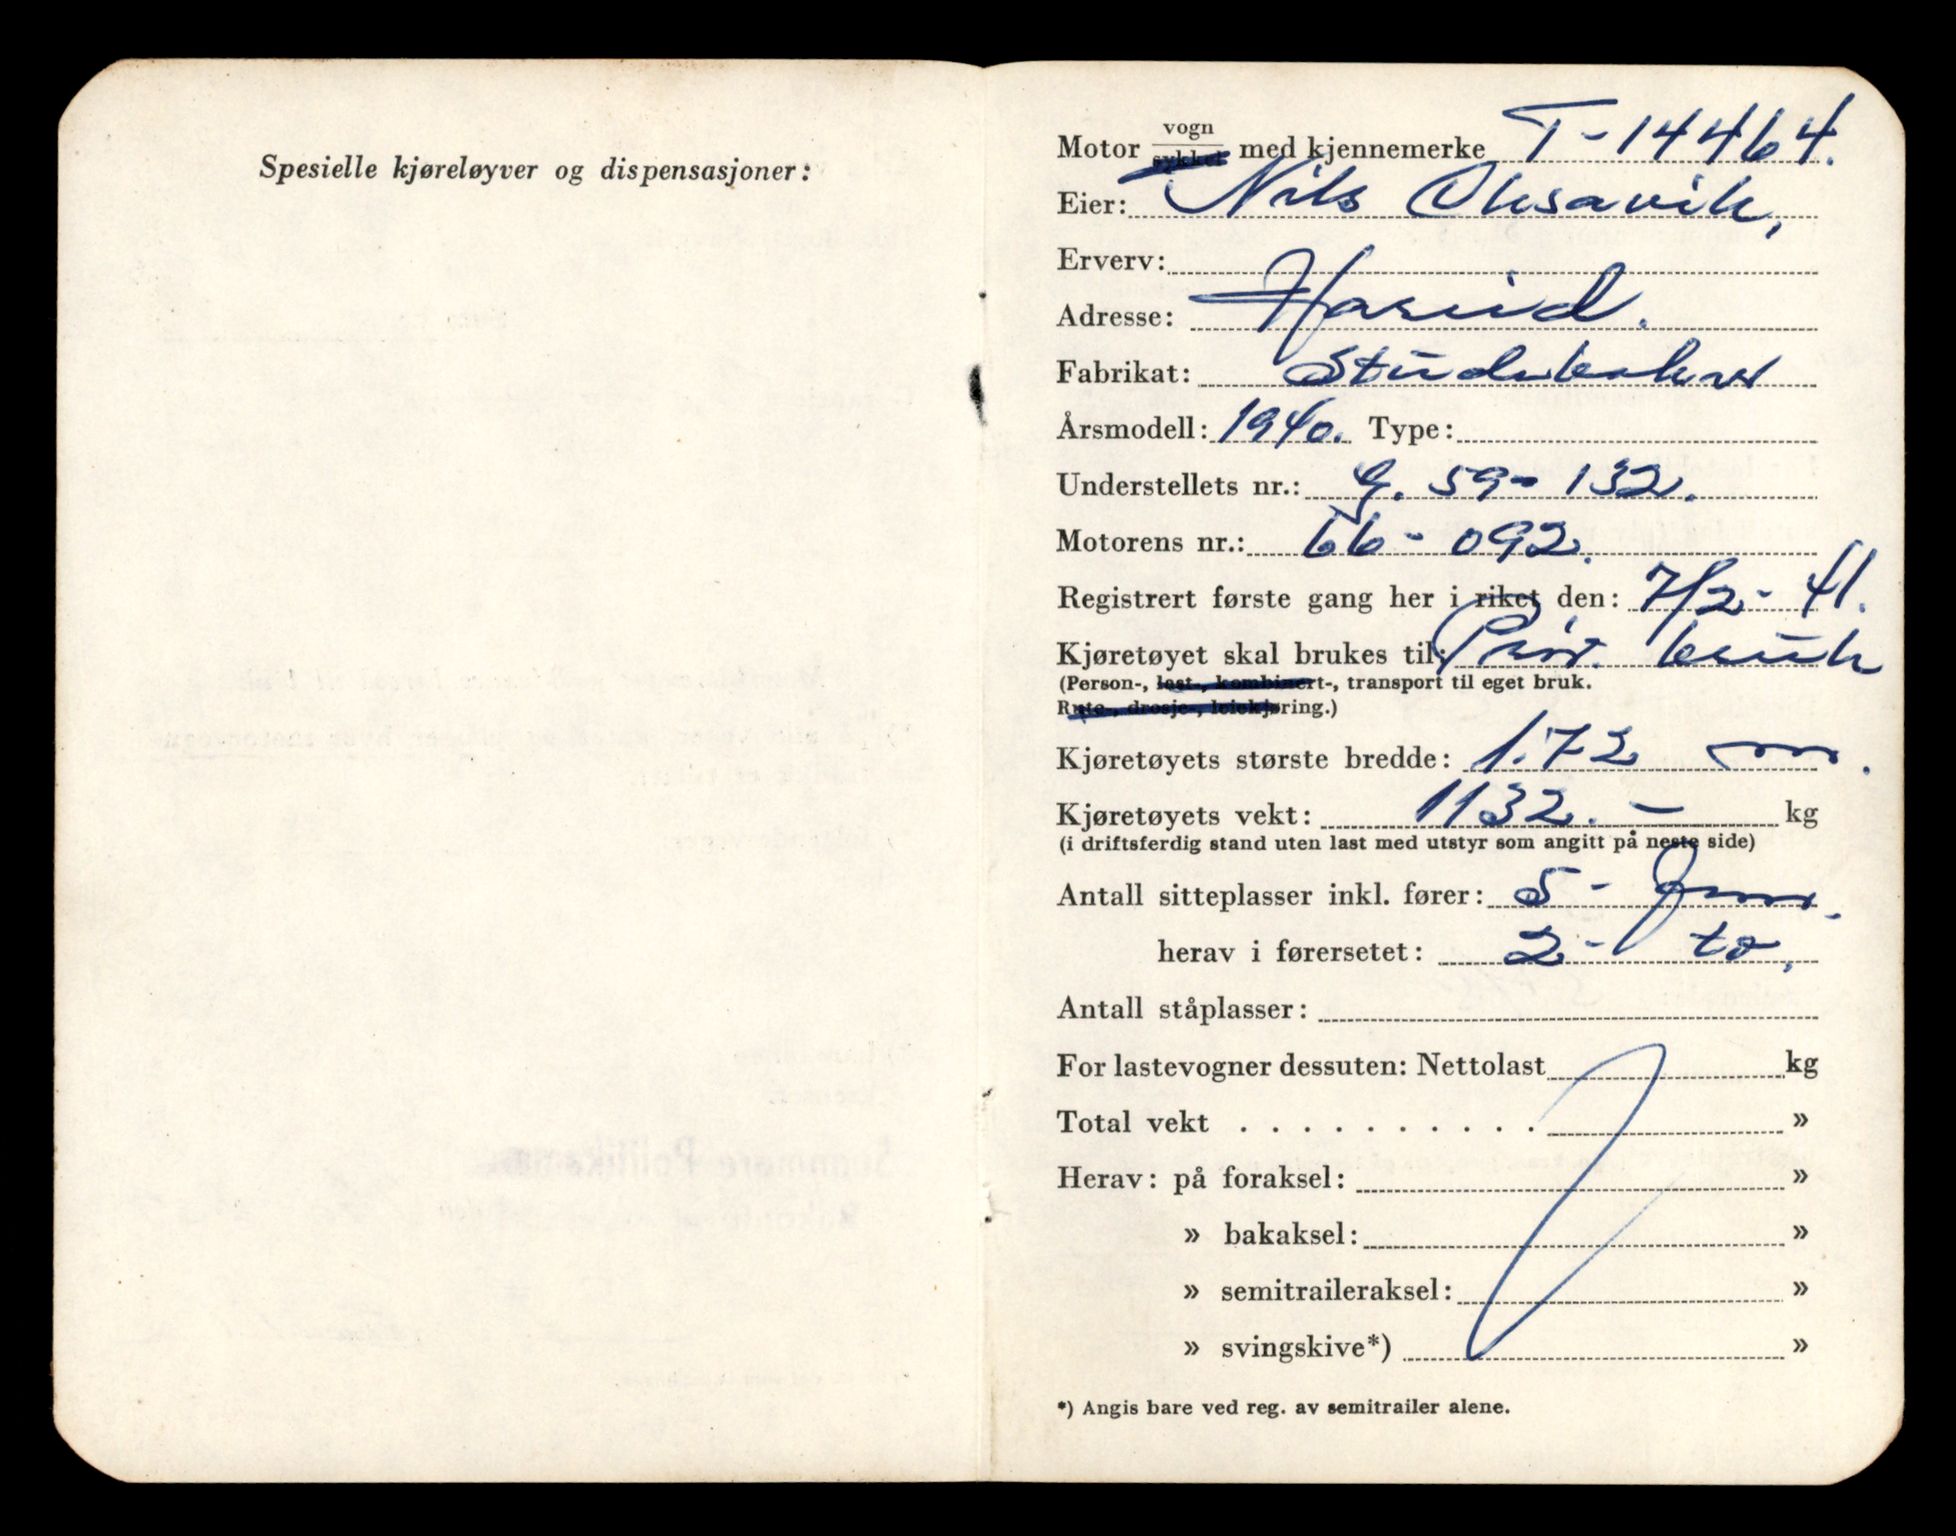 Spesielle kjøreløyver og dispensasjoner:
Motor vogn sykkel med kjennemerke T-14464.
Eier: Nils Oksavik,
Erverv:
Adresse: Hareid.
Fabrikat: Studebaker
Årsmodell: 1940. Type:
Understellets nr.: G. 59-132.
Motorens nr.: 66-092.
Registrert første gang her i riket den: 7/2-41.
Kjøretøyet skal brukes til: Priv. bruk
(Person-, last-, kombinert-, transport til eget bruk.
Rute-, drosje-, leiekjøring.)
Kjøretøyets største bredde: 1.72 m.
Kjøretøyets vekt: 1132.- kg
(i driftsferdig stand uten last med utstyr som angitt på neste side)
Antall sitteplasser inkl. fører: 5 - fem.
herav i førersetet: 2 - to.
Antall ståplasser:
For lastevogner dessuten: Nettolast kg
Total vekt . . . . . . . . . . »
Herav: på foraksel: »
» bakaksel: »
» semitraileraksel: »
» svingskive*) »
*) Angis bare ved reg. av semitrailer alene.